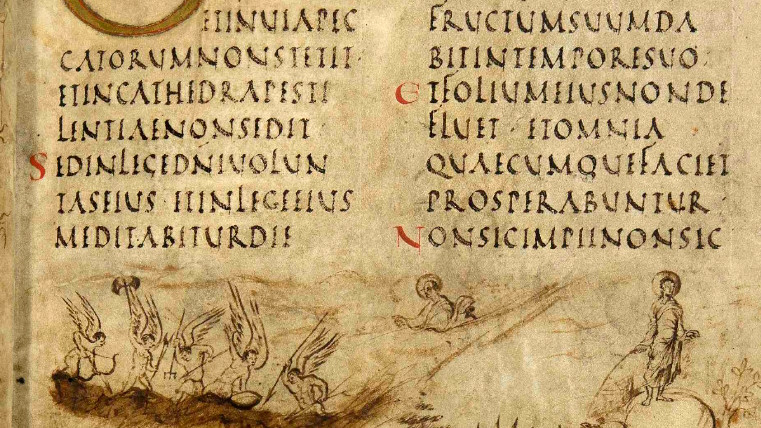 ETINVIAPEC
CATORUMNONSTETIT·
ETINCATHEDRAPESTI
LENTIAENONSEDIT·
SEDINLEGEDNIVOLUN
TASEIUS·ETINLEGEEIUS
MEDITABITURDIE
FRUCTUMSUUMDA
BITINTEMPORESUO·
ETFOLIUMEIUSNONDE
FLUET·ETOMNIA
QUAECUMQUEFACIET
PROSPERABUNTUR·
NONSICIMPIINONSIC